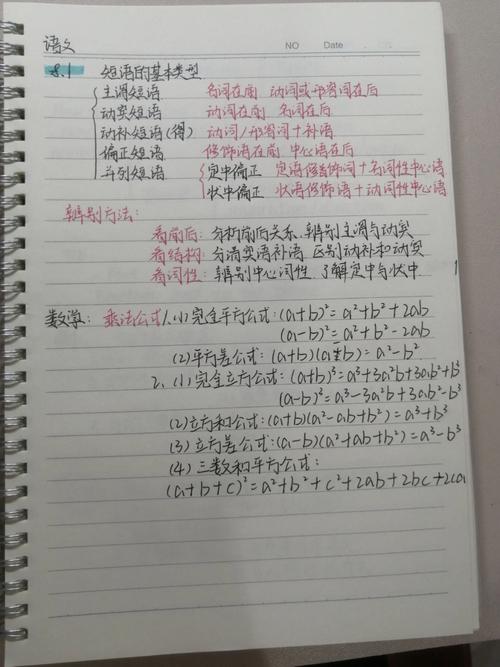 语文
NO Date
8.1 短语的基本类型
主谓短语 名词在前 动词或形容词在后
动宾短语 动词在前 名词在后
动补短语(得) 动词/形容词+补语
偏正短语 修饰语在前 中心语在后
并列短语 定中偏正 定语修饰词+名词性中心语
状中偏正 状语修饰语+动词性中心语
辨别方法:
看前后: 分析前后关系、辨别主谓与动宾
看结构: 分清宾语补语 区别动补和动宾
看词性: 辨别中心词性, 了解定中与状中
数学: 乘法公式 1、(1) 完全平方公式: (a+b)²=a²+b²+2ab
(a-b)²=a²+b²-2ab
(2) 平方差公式: (a+b)(a-b)=a²-b²
2、(1) 完全立方公式: (a+b)³=a³+3a²b+3ab²+b³
(a-b)³=a³-3a²b+3ab²-b³
(2) 立方和公式: (a+b)(a²-ab+b²)=a³+b³
(3) 立方差公式: (a-b)(a²+ab+b²)=a³-b³
(4) 三数和平方公式:
(a+b+c)²=a²+b²+c²+2ab+2bc+2ca